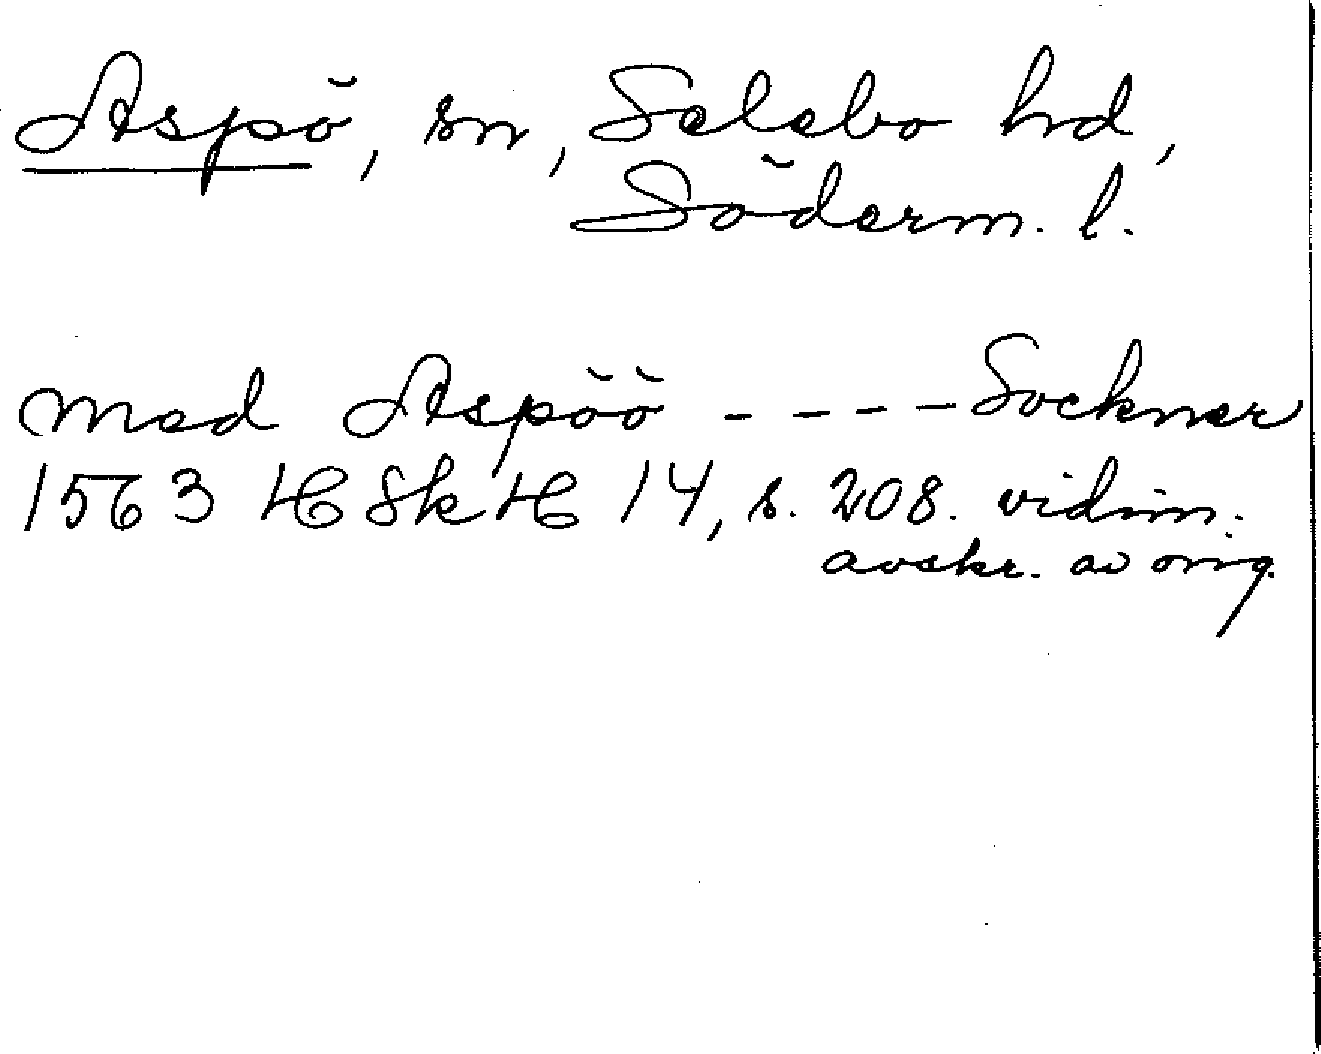 Aspö, sn, Selebo hd,
Söderm. l.
med Aspöö - - - - Sockner
1563 HSkH 14, s. 208. vidim.
avskr. av orig.